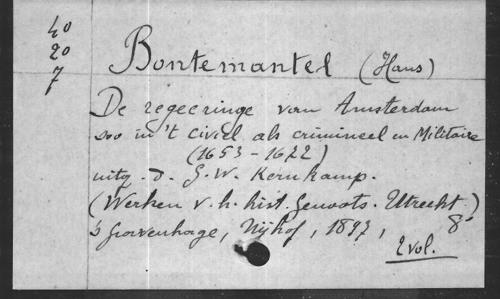 40
20
7
Bontemantel (Hans)
De regeeringe van Amsterdam
soo in't civiel als crimineel en Militaire
(1653-1672)
uitg. d. G. W. Kernkamp.
(Werken v. h. hist. Genoots. Utrecht)
's Gravenhage, Nijhof, 1897, 8°
2 vol.